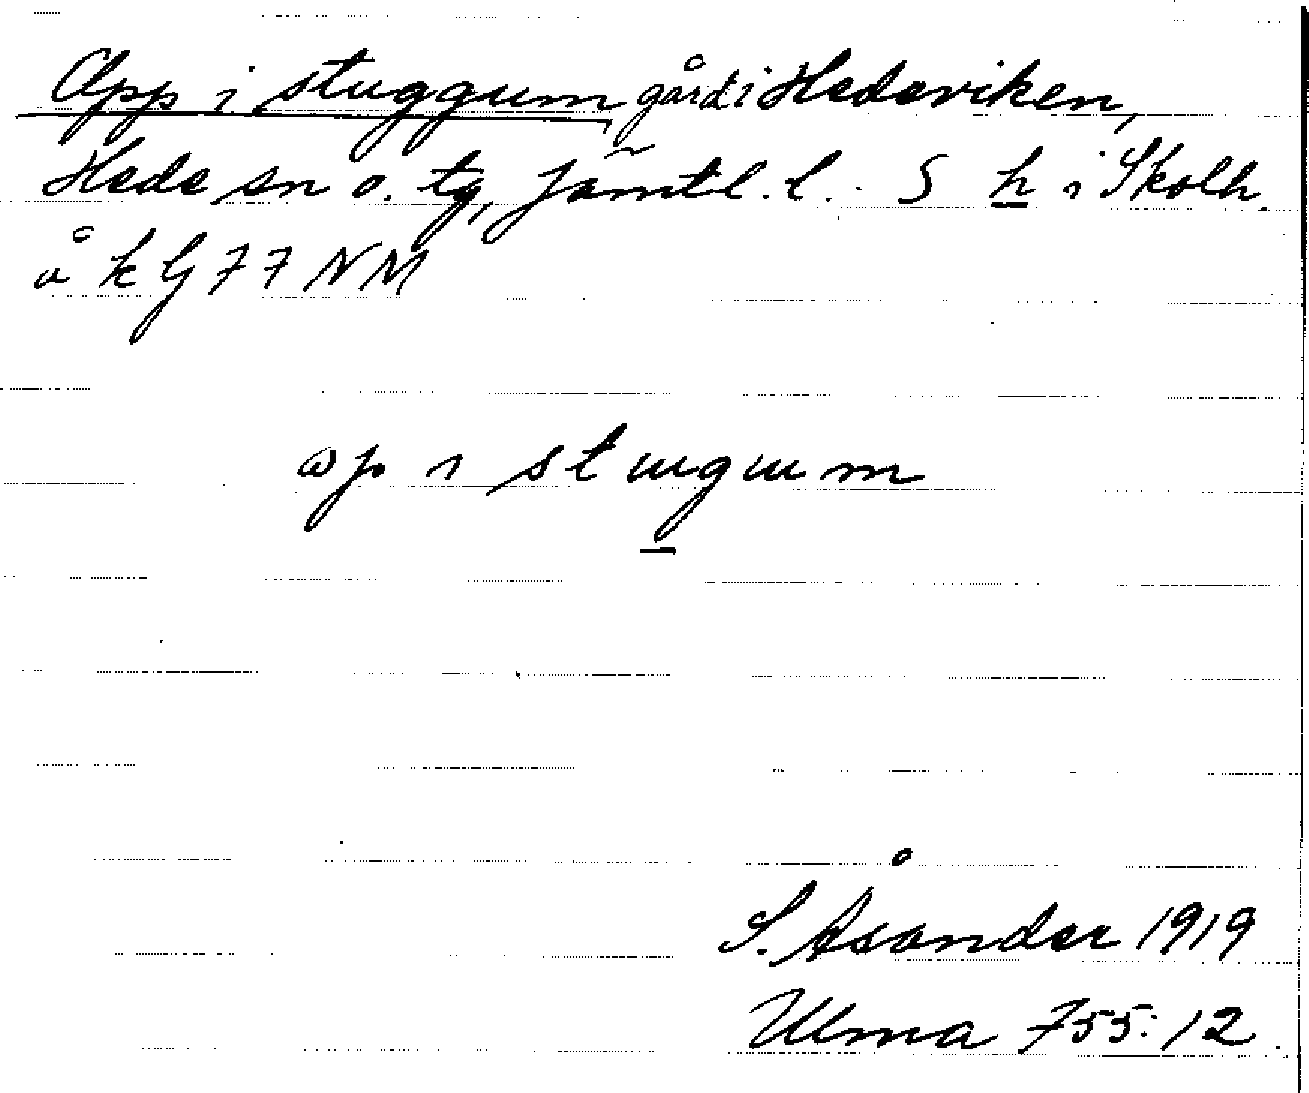 Opp i stuggum, gård i Hedeviken,
Hede sn o. tg, Jämtl. l. S h i Skolh.
å k G 77 NM
ɷp. ı stɯgɯm
S. Åsander 1919
Ulma 755:12.